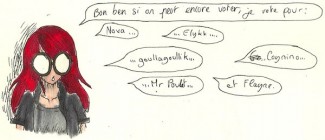 Bon ben si on peut encore voter, je vote pour:
Nova ...
... Elykk ...
... goullagoullik ...
... Cognino...
...Mr Poulet ...
et Flayne.